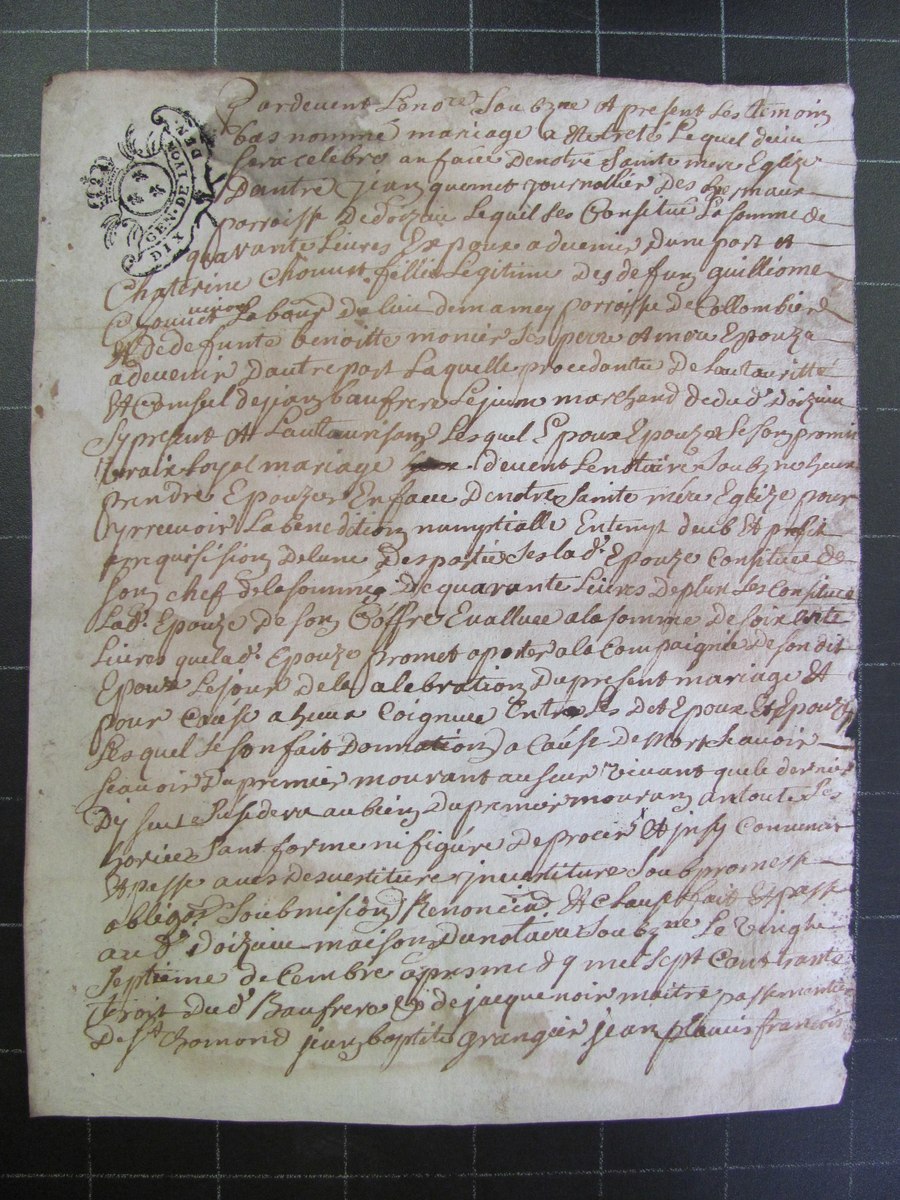 GEN. DE LION
DIX DEN
Pardevent Le no.re Soubz.ne Et present Les temoin
bas nommé mariage a Eté traité Lequel dieu
sera celebré an face De notre Sainte mere Eglize
Dantre jean quemet journallier Des
parroisse De doizieu Lequil ses Constitue La somme de
quarante Livres Expoux advenir Dune part Et
Chaterine Chouvet fillie Legitime des defun guilliome
Chouvet vivant Labour. Du lieu demamey parroisse De Collombier
Et de defunte benoitte monier Ses perre Et mere Epouza
advenir Dautre part Laquelle procedante De Lautauritté
Et Conseil de jean baufrere Lejune marchend de dud. doizieu
Sy present Et Lautaurisan Lesquel Epoux Epouze se son promis
vrais Loyal mariage devent Lenotaire Soubz.ne
prendre Epouzer En face De notre Sainte mere Eglize pour
y rrecevoir La benedition numptialle Entemp deub Et
requisision De lune Des partie ses lad. Epouze Constituee de
son chef de la somme De quarante Livres De plus ses Constitue
Lad. Epouze De son Coffre Evalluee a la somme De soixente
Livres que lad. Epouze promet aporter a la Compaignie de son dit
Epoux Le jour De la Calebration Du present mariage Et
pour Cause a heux Coignue Entre Les det Epoux Et Epouze
Lesquel se son fait Donnation a Cause De Mort Scavoir
Scavoir Du premier mourant au survivant que le dernier
Dy seul au bien Du premier mouran an toute ses
Sant forme ni figure De proces Et jnsy Convenut
Et passe aves desvestiture jnvestiture Soub promesse
obligan. Soubmision Renoncian. Et Clause fait Et passe
aud. doizieu maison Du notaire Soubz.ne Le vinght
septieme de Cembre apres me.dy mil sept Cent trante
trois Dud. Baufrere Et de jacque noir maitre passemantier
De S.t Chomond jean baptite grangier jean plavis francois